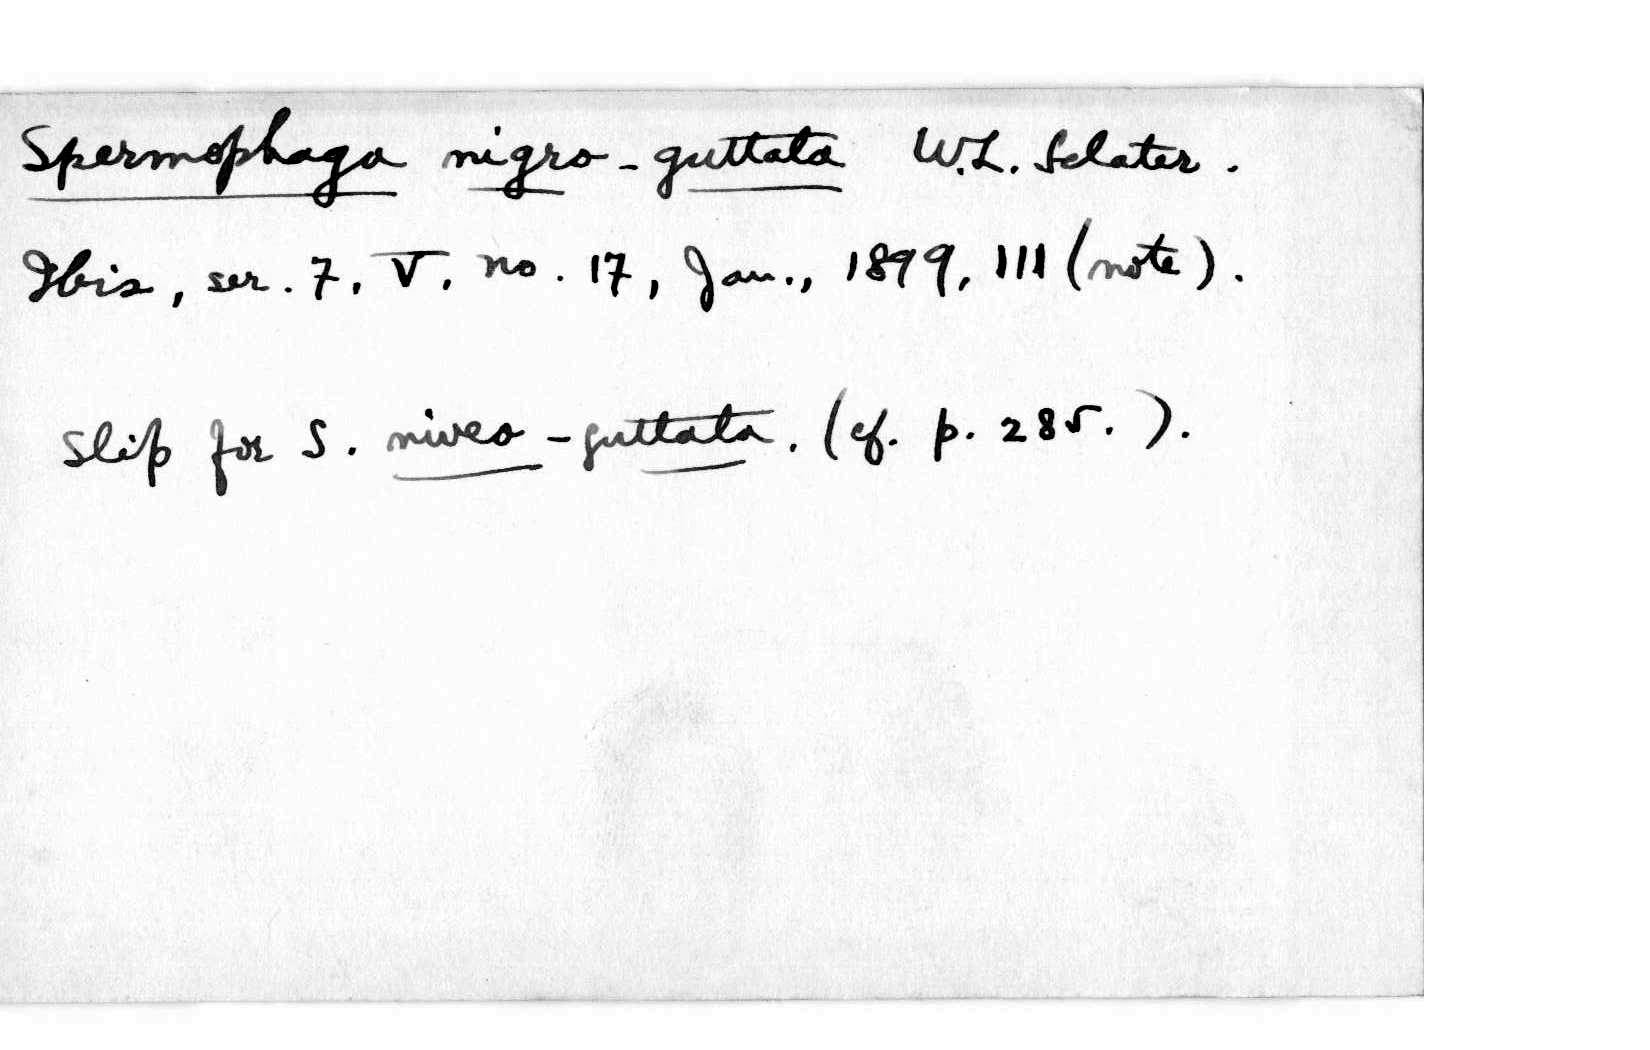 Spermophaga nigro-guttata W.L. Sclater.
Ibis, ser. 7, V, no. 17, Jan., 1899, 111 (note).
Slip for S. niveo-guttata. (cf. p. 285.).